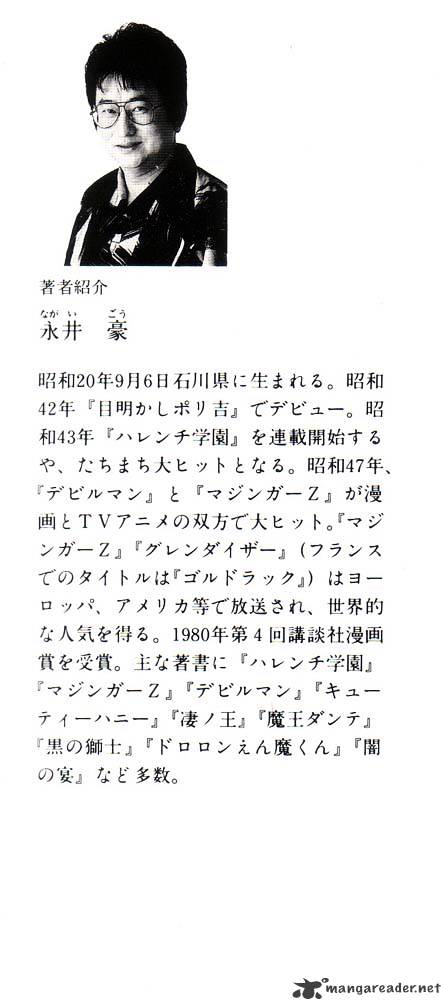 著者紹介
ながい ごう
永井 豪
昭和20年9月6日石川県に生まれる。昭和
42年『目明かしポリ吉』でデビュー。昭
和43年『ハレンチ学園』を連載開始する
や、たちまち大ヒットとなる。昭和47年、
『デビルマン』と『マジンガーZ』が漫
画とTVアニメの双方で大ヒット。『マジ
ンガーZ』『グレンダイザー』(フランス
でのタイトルは『ゴルドラック』)はヨー
ロッパ、アメリカ等で放送され、世界的
な人気を得る。1980年第4回講談社漫画
賞を受賞。主な著書に『ハレンチ学園』
『マジンガーZ』『デビルマン』『キュー
ティーハニー』『凄ノ王』『魔王ダンテ』
『黒の獅士』『ドロロンえん魔くん』『闇
の宴』など多数。
mangareader.net